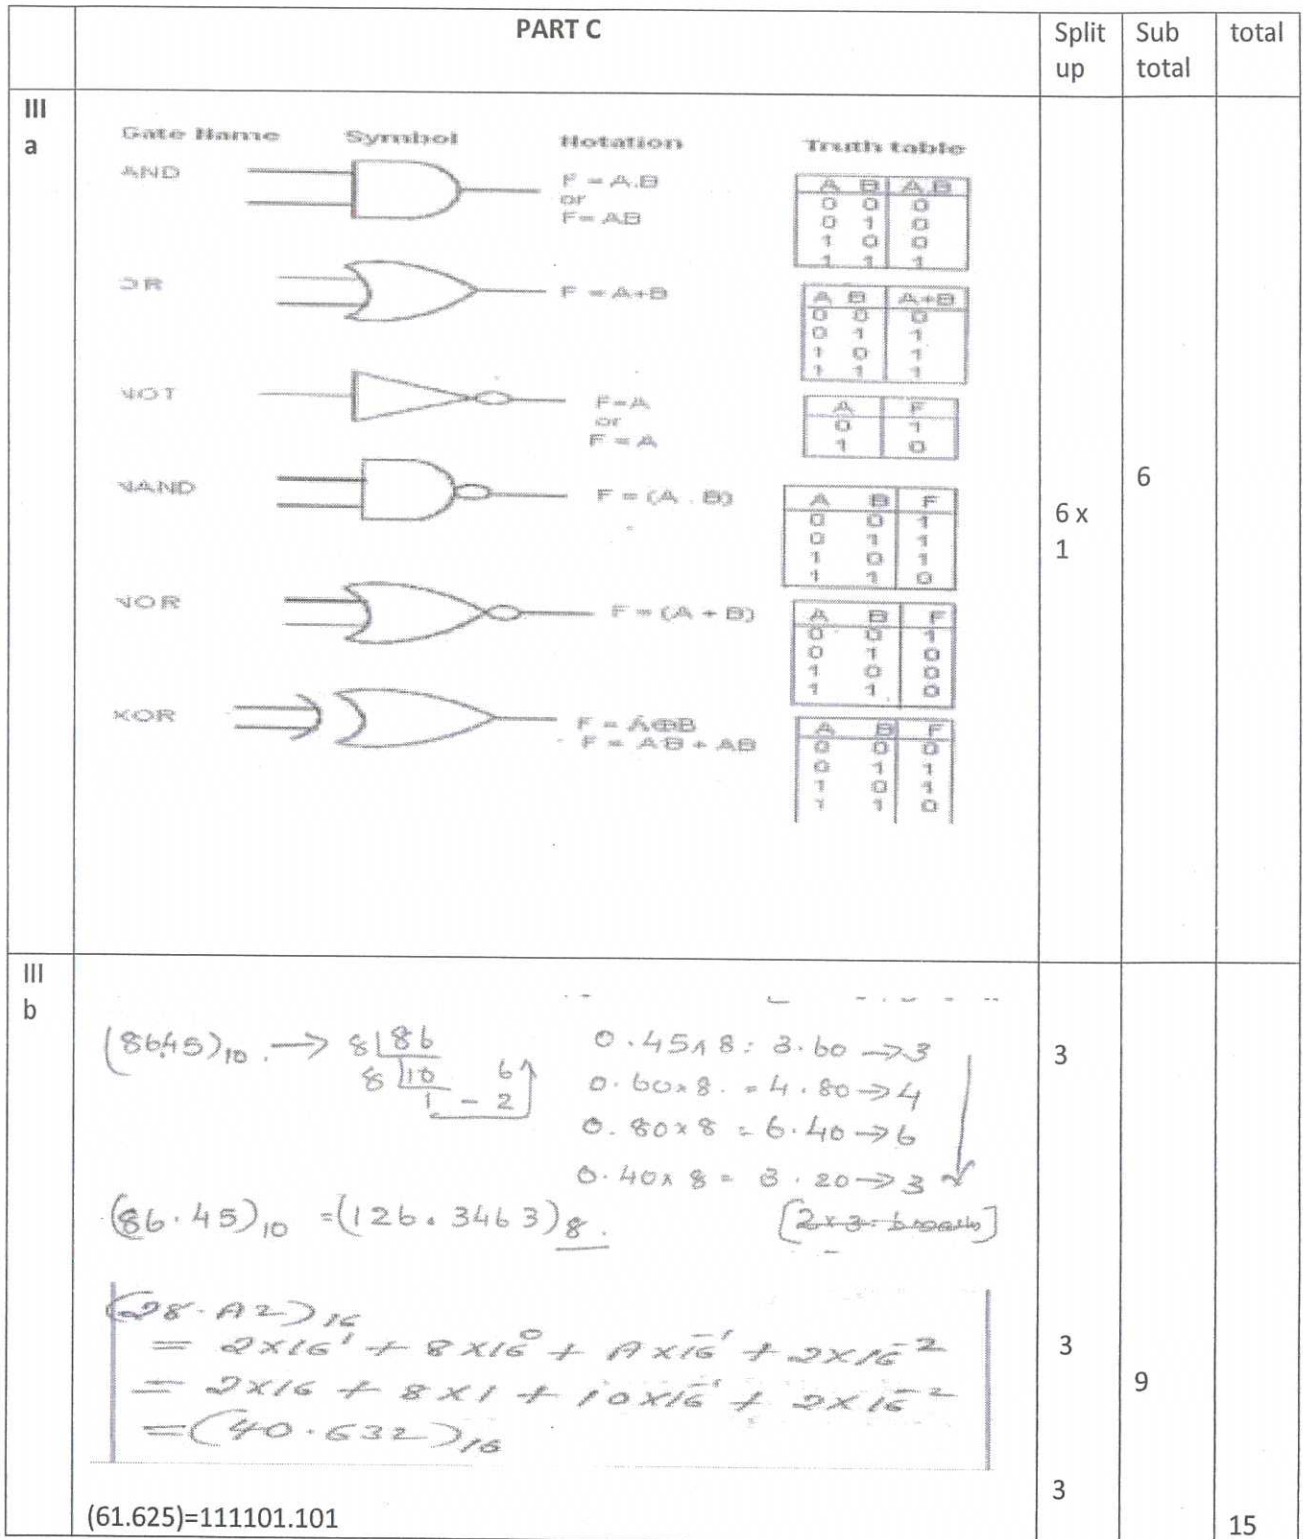 PART C
Split up
Sub total
total
III a
Gate Name Symbol Notation Truth table
AND
F = A.B
or
F= AB
A B A.B
0 0 0
0 1 0
1 0 0
1 1 1
OR
F = A+B
A B A+B
0 0 0
0 1 1
1 0 1
1 1 1
NOT
F=A
or
F = A
A F
0 1
1 0
NAND
F = (A . B)
A B F
0 0 1
0 1 1
1 0 1
1 1 0
NOR
F = (A + B)
A B F
0 0 1
0 1 0
1 0 0
1 1 0
XOR
F = A⊕B
F = AB + AB
A B F
0 0 0
0 1 1
1 0 1
1 1 0
6 x
1
6
III b
(86.45)10 → 8 86
8 10 6
1 - 2
0.45x8= 3.60 → 3
0.60x8. = 4.80 → 4
0.80x8 = 6.40 → 6
0.40x8 = 3.20 → 3
(86.45)10 = (126.3463)8.
3
(28.A2)16
= 2x16^1 + 8x16^0 + Ax16^-1 + 2x16^-2
= 2x16 + 8x1 + 10x16^-1 + 2x16^-2
= (40.632)16
3
9
(61.625)=111101.101
3
15